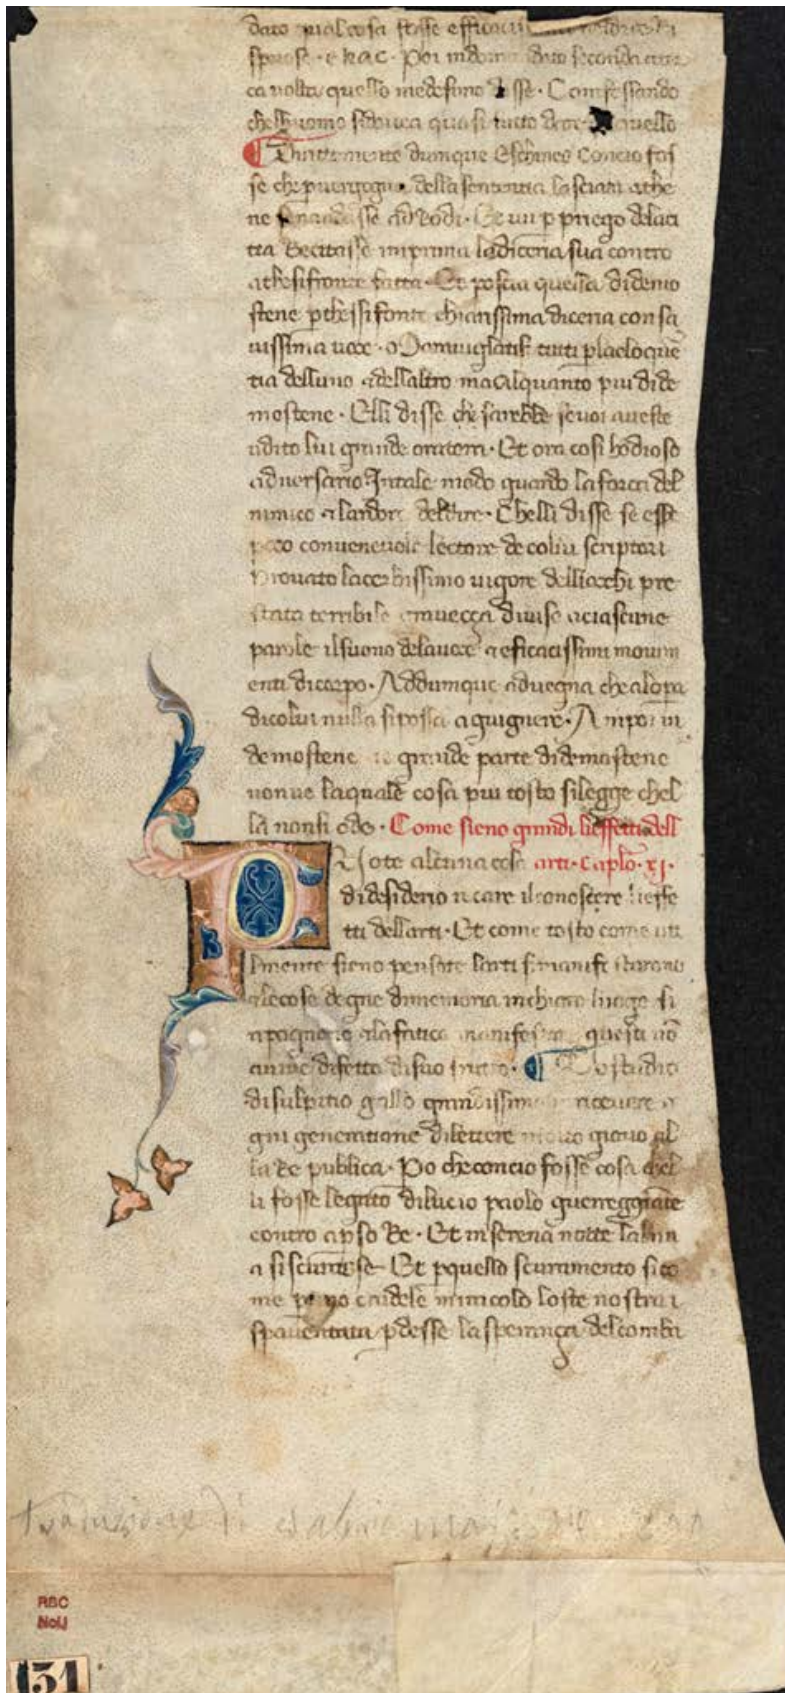 dato qual cosa fosse efficaci
spuose · e hac · Poi indomandato seconda
ca volta quello medesimo disse · Confessando
chelhuomo si buca quasi tutto
Drittamente dumque Eschines Concio fos
se che p uergogna della sententia lasciata athe
ne senandasse ad Rodi · Et iui p priego delaci
tta Recitasse imprima la diceria sua contro
athesifronte fatta · Et poscia quella di demo
stene p thesifonte chiarissima diceria con sa
uissima uoce · Marauigliati tutti p la eloque
tia delluno & dellaltro ma alquanto piu di de
mostene · Elli disse che sarebbe se uoi aueste
udito lui grande oratori · Et ora cosi hodioso
aduersario In tale modo quando la forza del
nimico & lardore deldire · Chelli disse se esse
poco conueneuole lectore de colui scriptori
Prouato lacerbissimo uigore delliocchi pre
stata terribile graueçça diuiso a ciascune
parole il suono delauoce & eficacissimi mouim
enti di corpo · Addumque aduegna che alopa
di colui nulla si possa agiugnere · Ampoi in
demostene grande parte di demostene
non ue la quale cosa piu tosto si legge chel
la non si ode · Come sieno grandi li effetti dell
P ote alcuna cosa arti · Caplo · xj ·
di desiderio recare il conoscere li effe
tti dell arti · Et come tosto come uti
lmente sieno pensate larti si manifestarono
& le cose degne di memoria in chiaro luogo si
apognono & la fatica manifesta questi no
aurae difetto di suo frutto · Lo studio
di sulpitio gallo grandissimo riceuere o
gni generatione di lettere molto giouo al
la Re publica · Po che concio fosse cosa chel
li fosse legato di lucio paolo guerreggiate
contro a pso Re · Et in serena notte la lun
a si scurasse Et p quello scuramento sico
me p uno crudele miracolo loste nostra i
spauentata p desse la sperança del comba
traduzione di valerio massimo
RBC
NoU
131